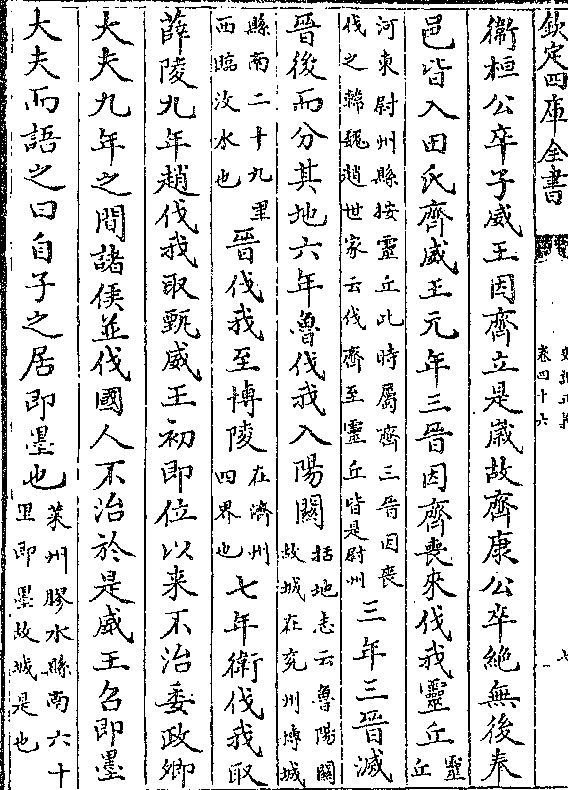 欽定四庫全書
卷四十六
衛桓公卒子威王因齊立是歲故齊康公卒絶無後奉
邑皆入田氏齊威王元年三晉因齊喪來伐我靈丘靈
丘
河東尉州縣按靈丘此時屬齊三晉因喪
伐之韓魏趙世家云伐齊至靈丘皆是尉州
三年三晉滅
晉後而分其地六年魯伐我入陽關
括地志云魯陽關
故城在兖州博城
縣南二十九里
西臨汶水也
晉伐我至博陵
在濟州
四界也
七年衛伐我取
薛陵九年趙伐我取甄威王初即位以来不治委政卿
大夫九年之間諸侯並伐國人不治於是威王召即墨
大夫而語之曰自子之居即墨也
萊州膠水縣南六十
里即墨故城是也